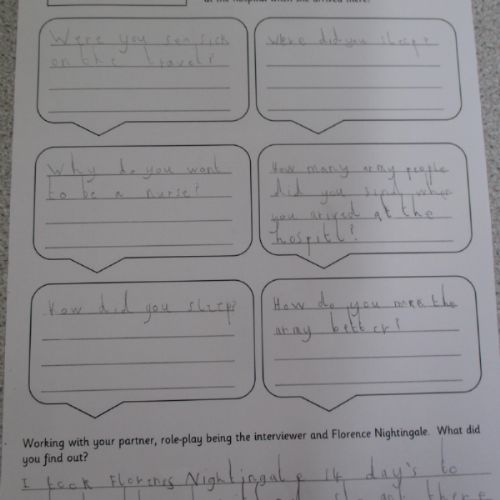 at the hospital when she arrived there.
Were you sea sick
on the travel?
Were did you sleep?
Why do you want
to be a nurse?
How many army people
did you find when
you arived at the
hospitl?
How did you sleep?
How do you make the
army better?
Working with your partner, role-play being the interviewer and Florence Nightingale. What did
you find out?
I took Florens Nightingale 14 day's to